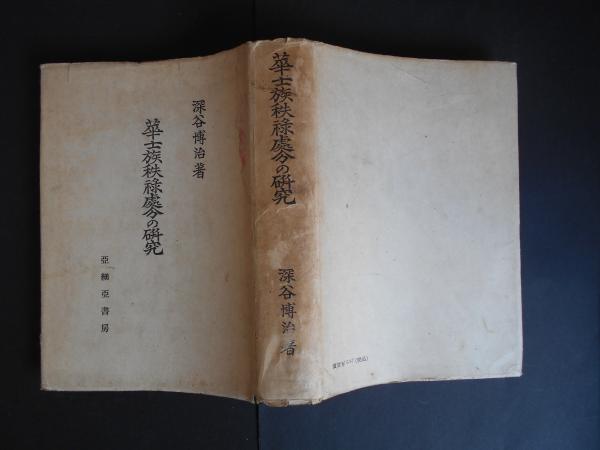 深谷博治著
華士族秩祿處分の研究
亞細亞書房
華士族秩祿處分の研究
深谷博治著